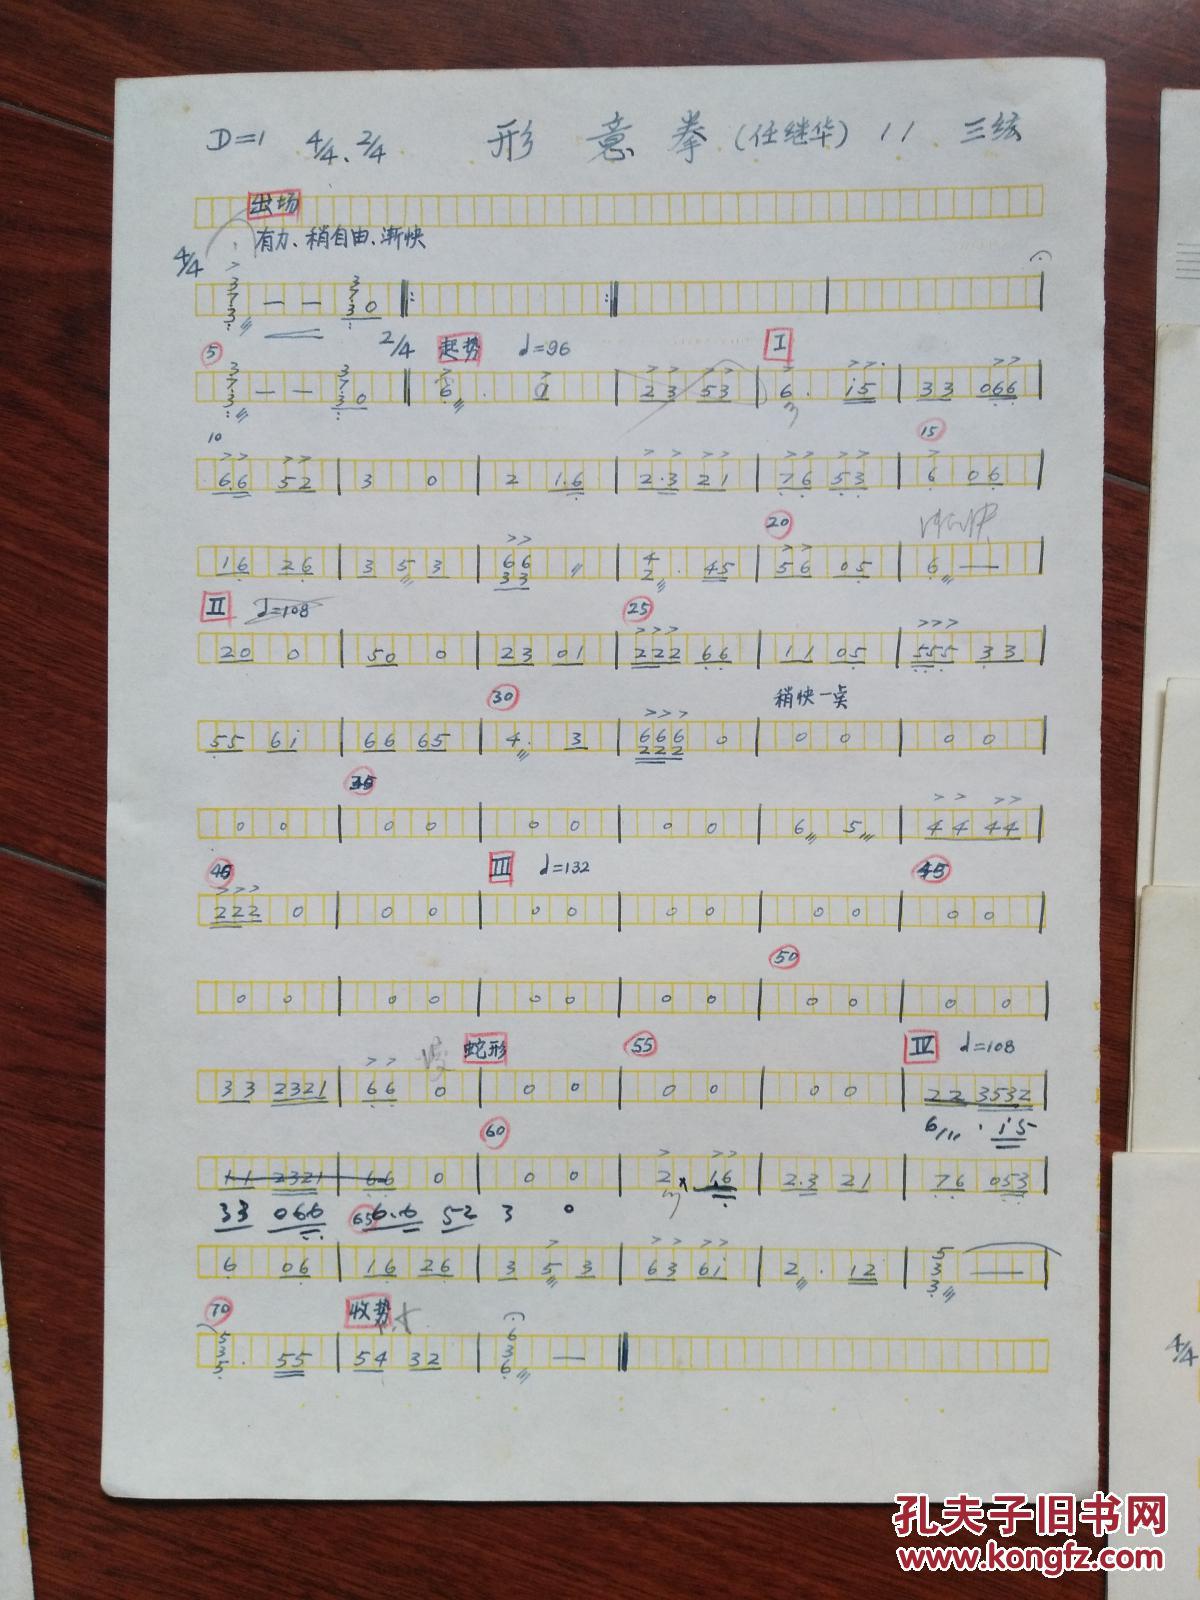 D=1 4/4、2/4 形意拳(任继华) 11 三弦
出场
有力、稍自由、渐快
4/4
3 7 3 — — 3 7 3 0
5 2/4 起势 d=96 I
3 7 3 — — 3 7 3 0 6 . 23 53 6 . i5 33 066
10 15
6.6 52 3 0 2 1.6 2.3 21 76 53 6 06
20
16 26 3 5 3 66 33 4 2 . 45 56 05 6 —
II d=108 25
20 0 50 0 23 01 222 66 11 05 555 33
30 稍快一点
55 6i 66 65 4 . 3 666 222 0 0 0 0 0
35
0 0 0 0 0 0 0 0 6 5 44 44
40 III d=132 45
222 0 0 0 0 0 0 0 0 0 0 0
50
0 0 0 0 0 0 0 0 0 0 0 0
蛇形 55 IV d=108
33 2321 66 0 0 0 0 0 0 0 22 3532
60 6 . i5
11 2321 66 0 0 0 2 16 2.3 21 76 053
33 066 65 6.6 52 3 0
6 06 16 26 3 5 3 63 6i 2 . 12 5 3 3 —
70 收势
5 3 5 . 55 54 32 6 3 6 —
4/4
孔夫子旧书网
www.kongfz.com